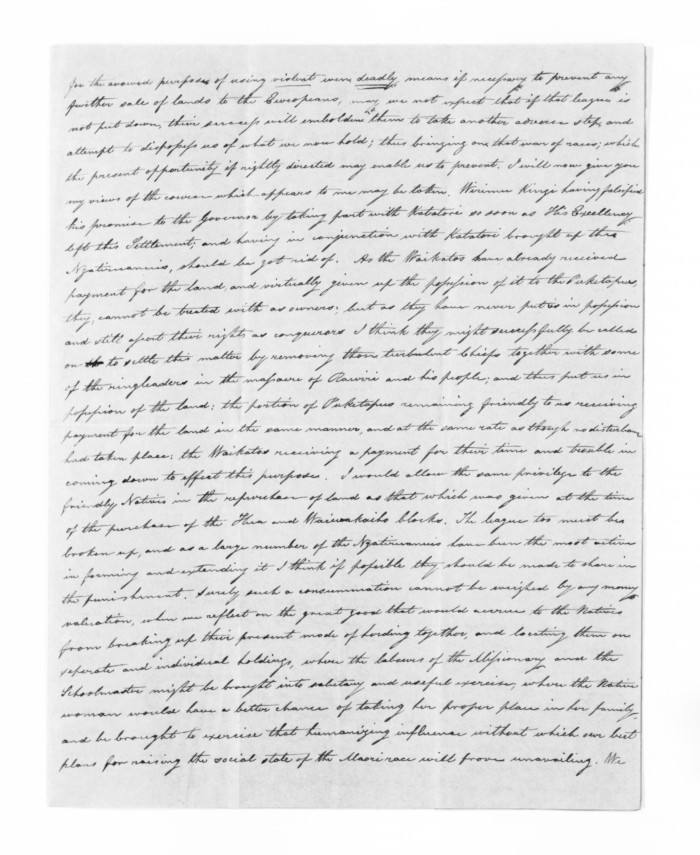 for the avowed purposes of using violent even deadly means if necessary to prevent any
further sale of lands to the Europeans, may we not expect that if that league is
not put down, their success will embolden them to take another adverse step, and
attempt to dispossess us of what we now hold; thus bringing on that war of races; which
the present opportunity if rightly directed may enable us to prevent. I will now give you
my views of the course which appears to me may be taken. Wirimu Kingi having falsified
his promise to the Governor by taking part with Katatori so soon as His Excellency
left this Settlement; and having in conjunction with Katatori brought up the
Ngatiruanuis, should be got rid of. As the Waikatos have already received
payment for the land, and virtually given up the possession of it to the Puketapus,
they, cannot be treated with as owners; but as they have never put us in possession
and still assert their rights as conquerors I think they might successfully be called
on to settle this matter by removing those turbulent Chiefs together with some
of the ringleaders in the massacre of Rawiri and his people; and thus put us in
possession of the land; the portion of Puketapus remaining friendly to us receiving
payment for the land in the same manner, and at the same rate as though no disturbance
had taken place; the Waikatos receiving a payment for their time and trouble in
coming down to effect this purpose. I would allow the same privilege to the
friendly Natives in the repurchase of land as that which was given at the time
of the purchase of the Hua and Waiwakaiho blocks. The league too must be
broken up, and as a large number of the Ngatiruanuis have been the most active
in forming and extending it I think if possible they should be made to share in
the punishment. Surely such a consummation cannot be weighed by any money
valuation, when we reflect on the great good that would accrue to the Natives
from breaking up their present mode of herding together, and locating them on
seperate and individual holdings, where the labours of the Missionary and the
Schoolmaster might be brought into salutary and useful exercise, where the Native
woman would have a better chance of taking her proper place in her family,
and be brought to exercise that humanizing influence without which our best
plans for raising the social state of the Maori race will prove unavailing. We